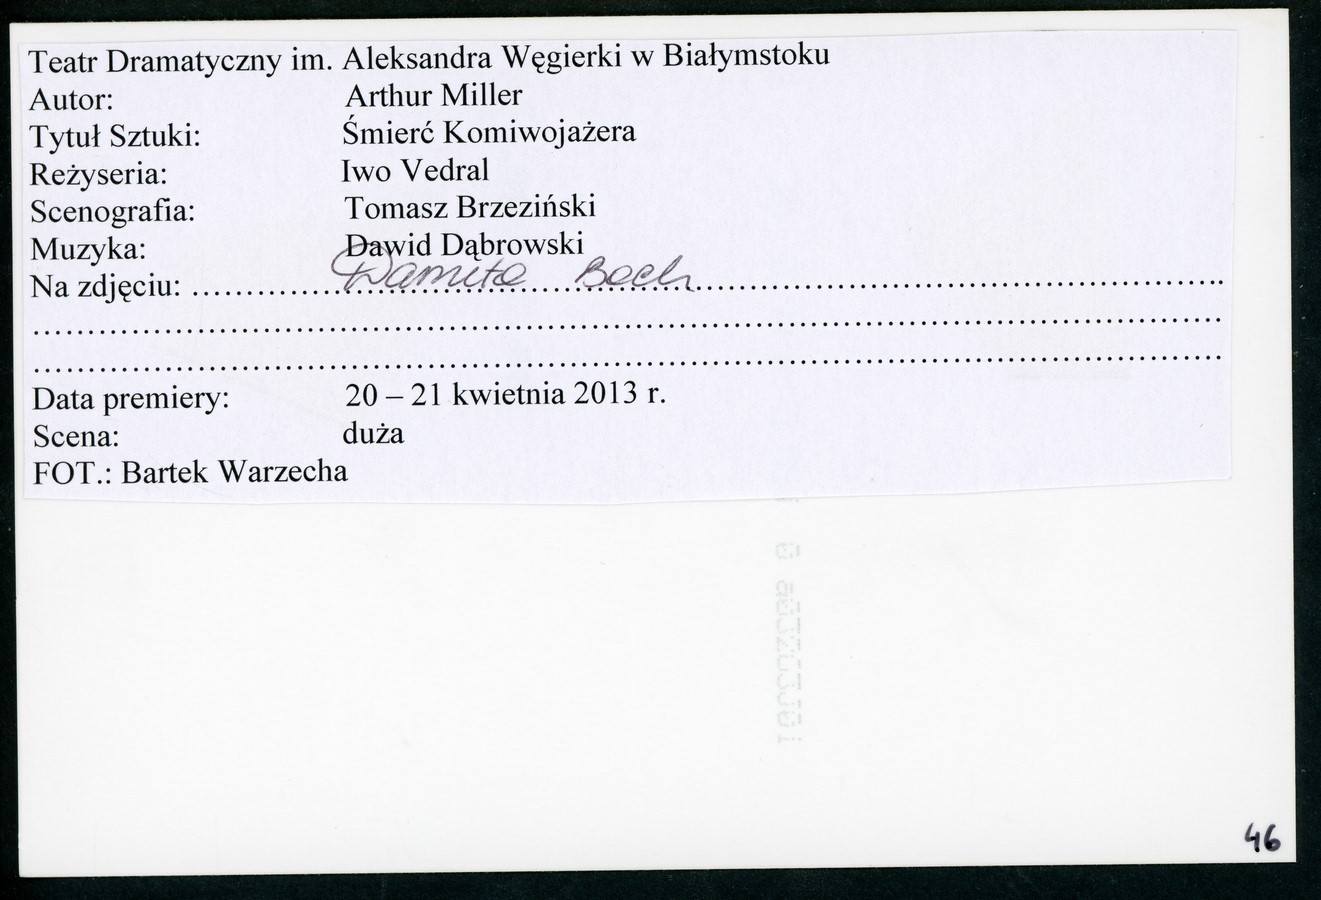 Teatr Dramatyczny im. Aleksandra Węgierki w Białymstoku
Autor: Arthur Miller
Tytuł Sztuki: Śmierć Komiwojażera
Reżyseria: Iwo Vedral
Scenografia: Tomasz Brzeziński
Muzyka: Dawid Dąbrowski
Na zdjęciu: Danuta Bach
Data premiery: 20 – 21 kwietnia 2013 r.
Scena: duża
FOT.: Bartek Warzecha
46